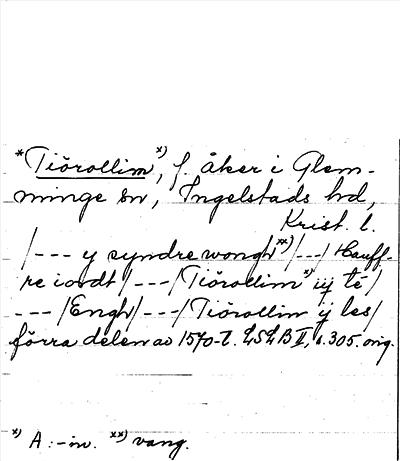 *Tiörollim x), f. åker i Glem-
minge sn, Ingelstads hd,
Krist. l.
/--- y syndre wongh xx)/---/ Hauff-
re iordt/---/Tiörollim x) iij té/
---/Engh/---/Tiörollim ij les/
förra delen av 1570-t. LSLB II, s. 305. orig.
x) A: -in. xx) vang.